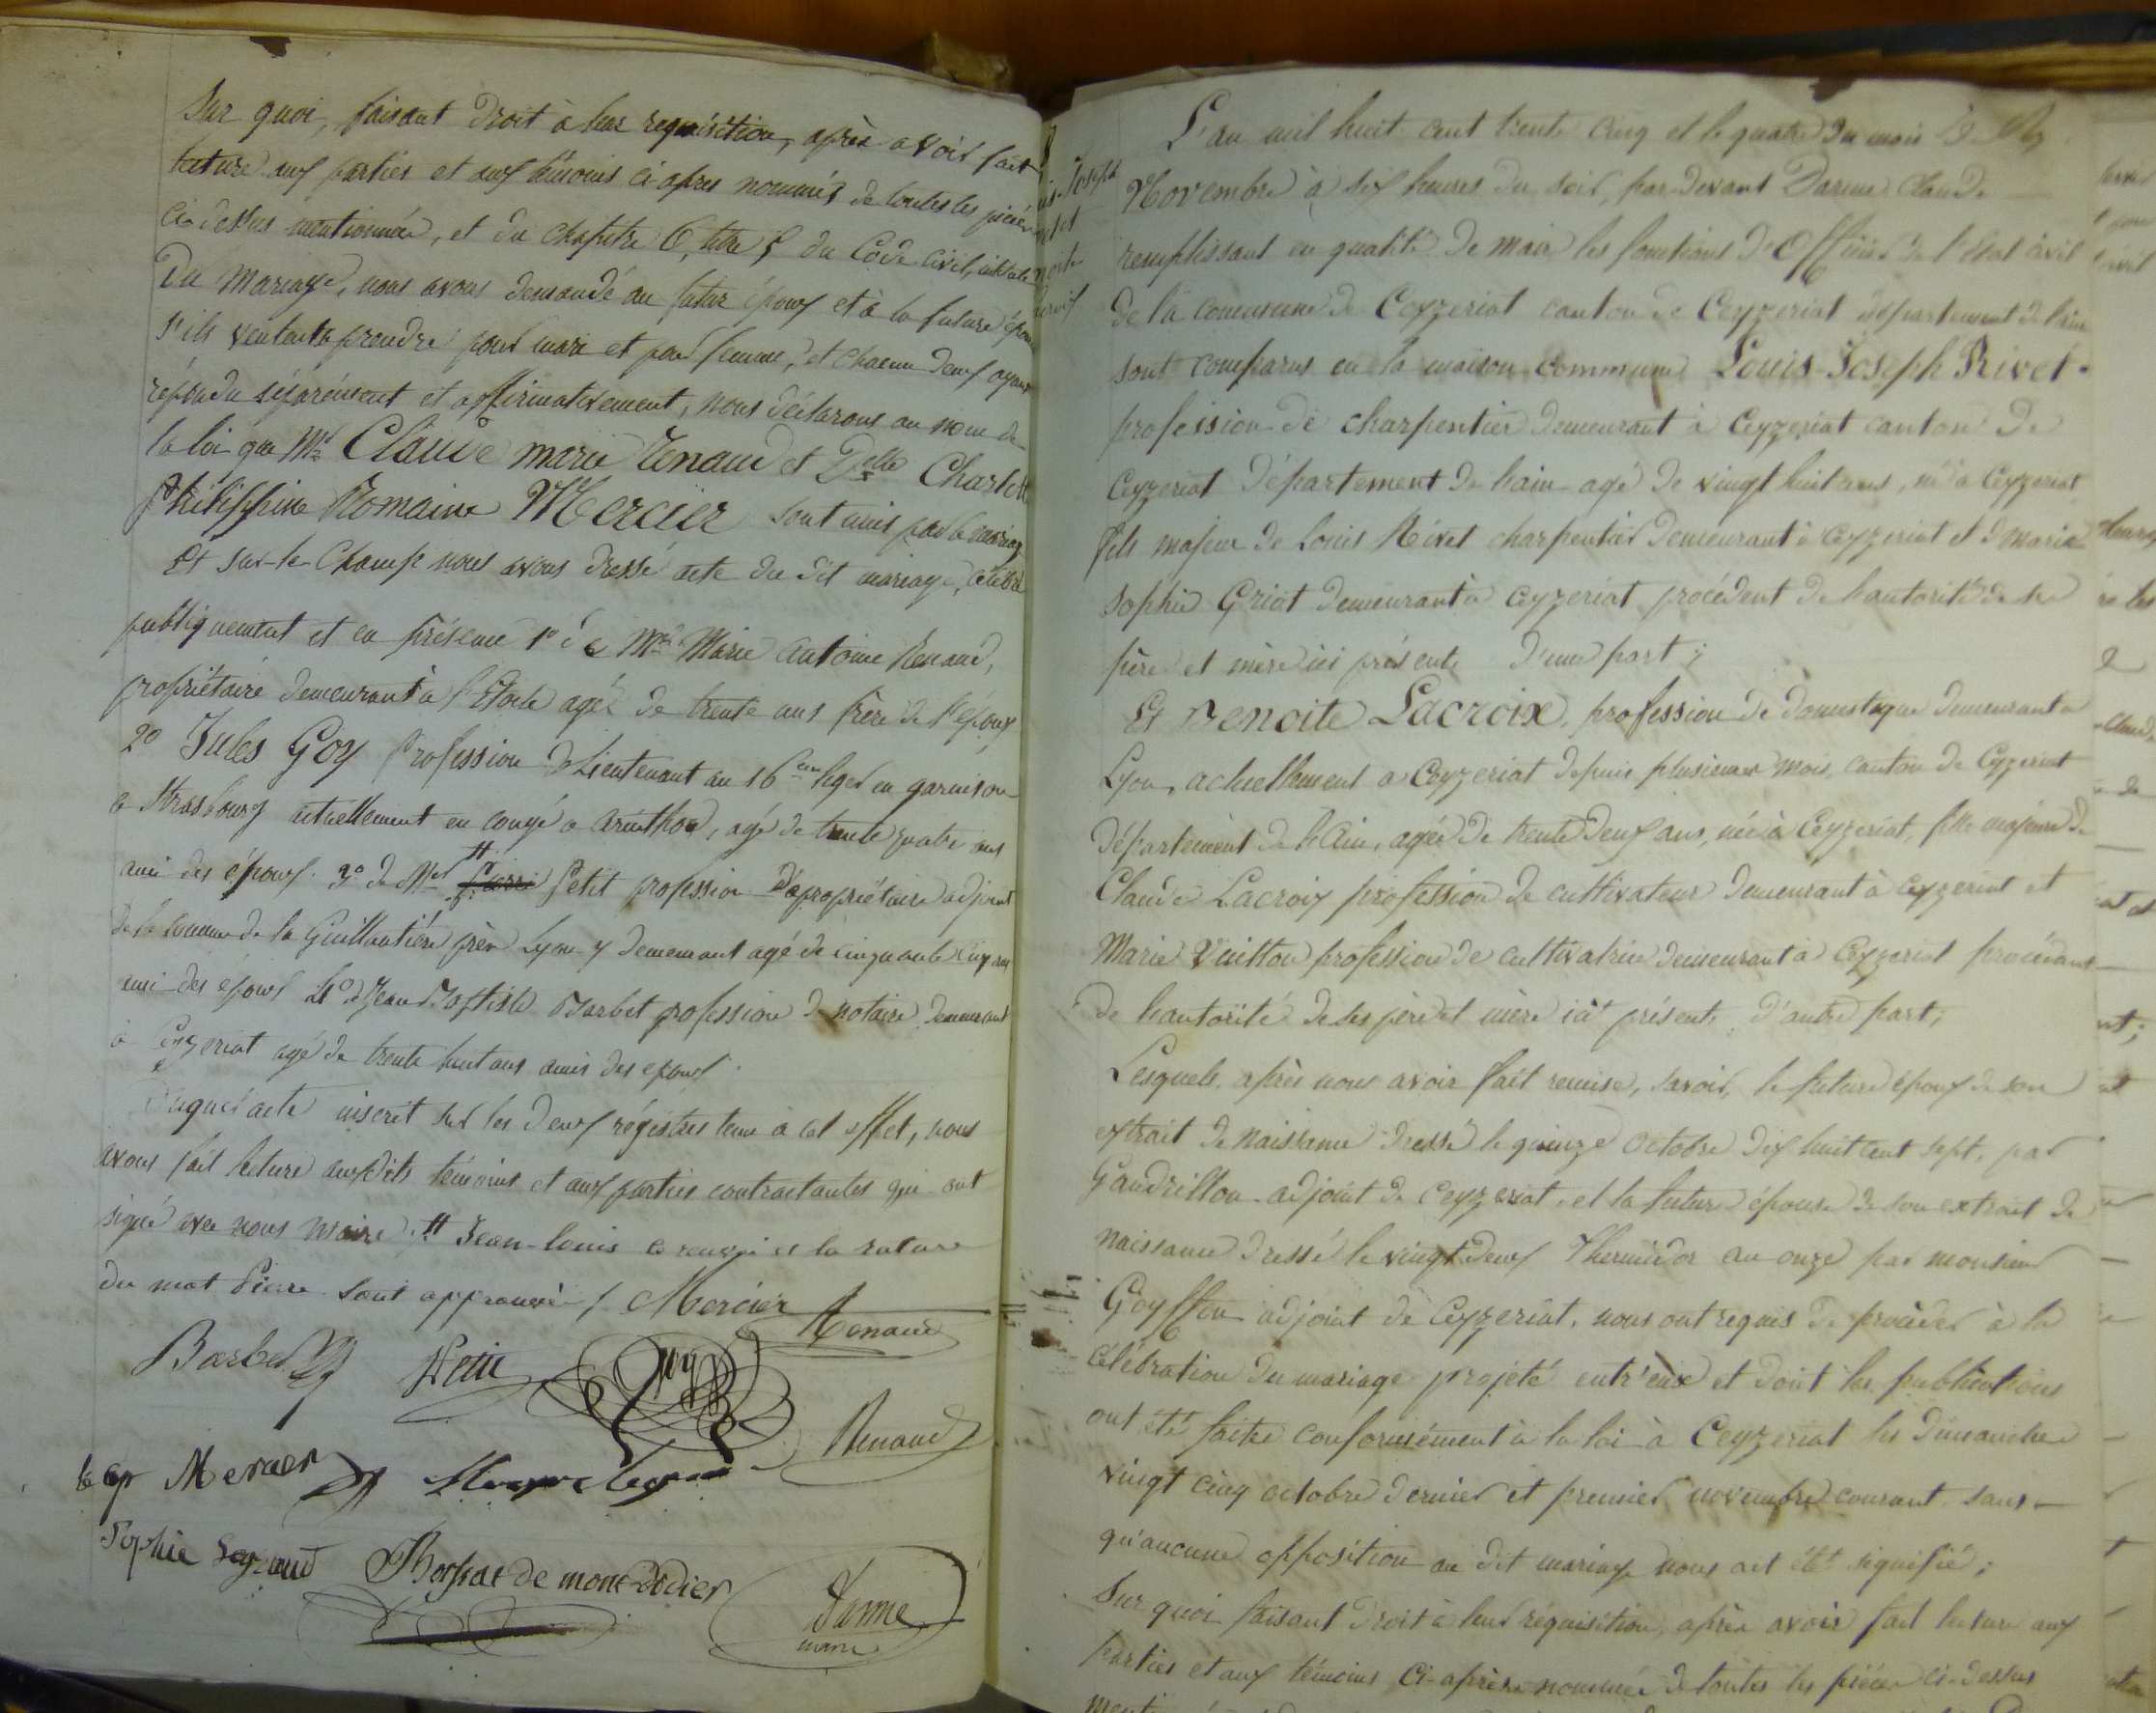 Sur quoi, faisant droit à leur requisition, après avoir fait
lecture aux parties et aux témoins ci après nommés de toutes les pièces
ci-dessus mentionnées, et du chapitre 6, titre 5 du Code Civil, intitulé
Du Mariage, nous avons demandé au futur époux et à la future épouse
s'ils veulent se prendre pour mari et pour femme, et chacun d'eux ayant
répondu séparément et affirmativement, nous déclarons au nom de
la loi que Mr Claude marie Renaud et Delle Charlotte
Philippine Romaine Mercier sont unis par le mariage
Et sur-le-Champ nous avons dressé acte du dit mariage, célébré
publiquement et en présence 1º de Mr Marie Antoine Renaud,
propriétaire demeurant à l'Etoile agé de trente ans frère de l'époux
2º Jules Goy profession de Lieutenant au 16 leger en garnison
a Strasbourg actuellement en congé a arinthod, agé de trente quatre ans
ami des époux. 3º de Mr Pierre # Petit profession de propriétaire adjoint
de la commune de la Guillautière près Lyon y demeurant agé de cinquante cinq ans
ami des époux 4º de Jean Baptiste Barbet profession de notaire demeurant
à Ceyzeriat agé de trente huit ans amis des epoux.
Duquel acte inscrit sur les deux régistres tenu à cet effet, nous
avons fait lecture auxdits témoins et aux parties contractantes qui ont
signé avec nous Maire. # Jean-louis le renvoi et la rature
du mot Pierre sont approuvés /. Mercier
Renaud
Barbet Petit Goy
Renaud
Mercier
Sophie Borsat de montdidier
Darme
maire
L'an mil huit cent trente cinq et le quatre du mois de
Novembre à six heures du soir, par-devant Darme Claude
remplissant en qualité de maire les fonctions d'Officier de l'état civil
de la commune de Ceyzeriat canton de Ceyzeriat département de l'ain
sont comparus en la maison commune Louis-Joseph Rivet
profession de charpentier demeurant à Ceyzeriat canton de
Ceyzeriat Département de l'ain agé de vingt huit ans, né à Ceyzeriat
fils majeur de Louis Rivet charpentier demeurant à Ceyzeriat et de marie
Sophie Griot demeurant à Ceyzeriat procédent de l'autorité de ses
père et mère ici présents d'une part;
Et Benoite Lacroix, profession de domestique demeurant a
Lyon, actuellement a Ceyzeriat depuis plusieurs mois, canton de Ceyzeriat
Département de l'Ain, agée de trente deux ans, née à Ceyzeriat, fille majeure de
Claude Lacroix profession de cultivateur demeurant à Ceyzeriat et
Marie Vuitton profession de cultivatrice demeurant à Ceyzeriat procédant
de l'autorité de ses père et mère ici présents d'autre part;
Lesquels, après nous avoir fait remise, savoir, le future époux de son
extrait de naissance dressé le quinze Octobre dix huit cent sept, par
Gaudrillon adjoint de Ceyzeriat. et la future épouse de son extrait de
naissance dressé le vingt deux Thermidor an onze par monsieur
Goyffon adjoint de Ceyzeriat, nous ont requis de procéder à la
célébration du mariage projeté entr'eux et dont les publications
ont été faites conformément à la loi à Ceyzeriat les dimanches
vingt cinq octobre dernier et premier novembre courant sans
qu'aucune opposition au dit mariage nous ait été signifié;
Sur quoi faisant droit à leur réquisition, après avoir fait lecture aux
parties et aux témoins Ci-après nommés de toutes les pièces ci-dessus